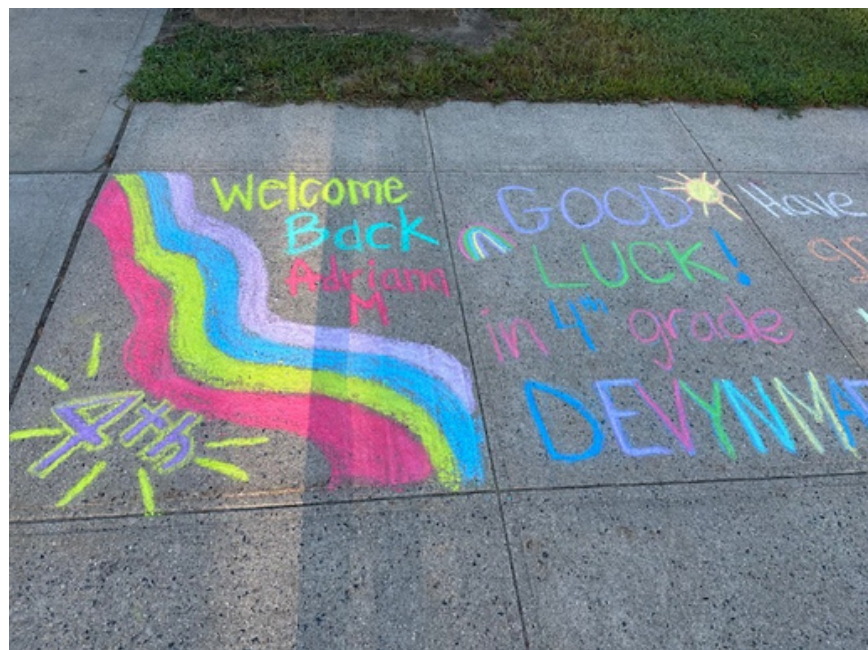 Welcome
Back
Adriana
M
4th
GOOD
LUCK!
in 4th grade
DEVYNMA
Have